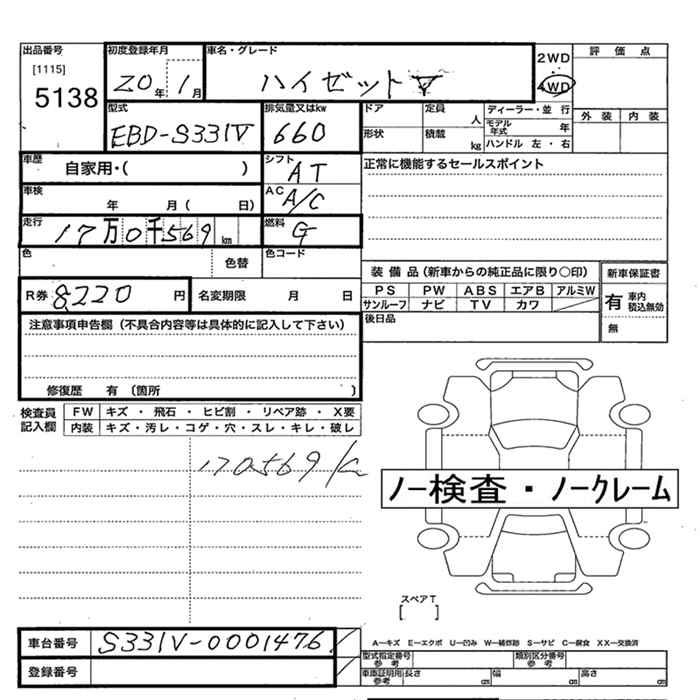 出品番号 初度登録年月 車名・グレード 評価点
[1115]
5138
20年 1月 ハイゼット 2WD
4WD
外装 内装
型式 排気量又はkw ドア 定員 人 ディーラー・並行
EBD-S331V 660 モデル年式 年
形状 積載 kg ハンドル 左・右
車歴 自家用・( ) シフト AT 正常に機能するセールスポイント
車検 年 月( 日) AC A/C
走行 17万0千569km 燃料 G
色 色替 色コード
装備品(新車からの純正品に限り○印) 新車保証書
PS PW ABS エアB アルミW 有 車内積込無効
サンルーフ ナビ TV カワ
無
R券 8220円 名変期限 月 日 後日品
注意事項申告欄(不具合内容等は具体的に記入して下さい)
修復歴 有(箇所 )
検査員記入欄 FW キズ・飛石・ヒビ割・リペア跡・X要
内装 キズ・汚レ・コゲ・穴・スレ・キレ・破レ
170569/
ノー検査・ノークレーム
スペアT
[ ]
車台番号 S331V-0001476
A―キズ E―エクボ U―凹み W―補修跡 S―サビ C―腐食 XX―交換済
型式指定番号 参考 類別区分番号 参考
登録番号 車庫証明用 参考 長さ cm 幅 cm 高さ cm